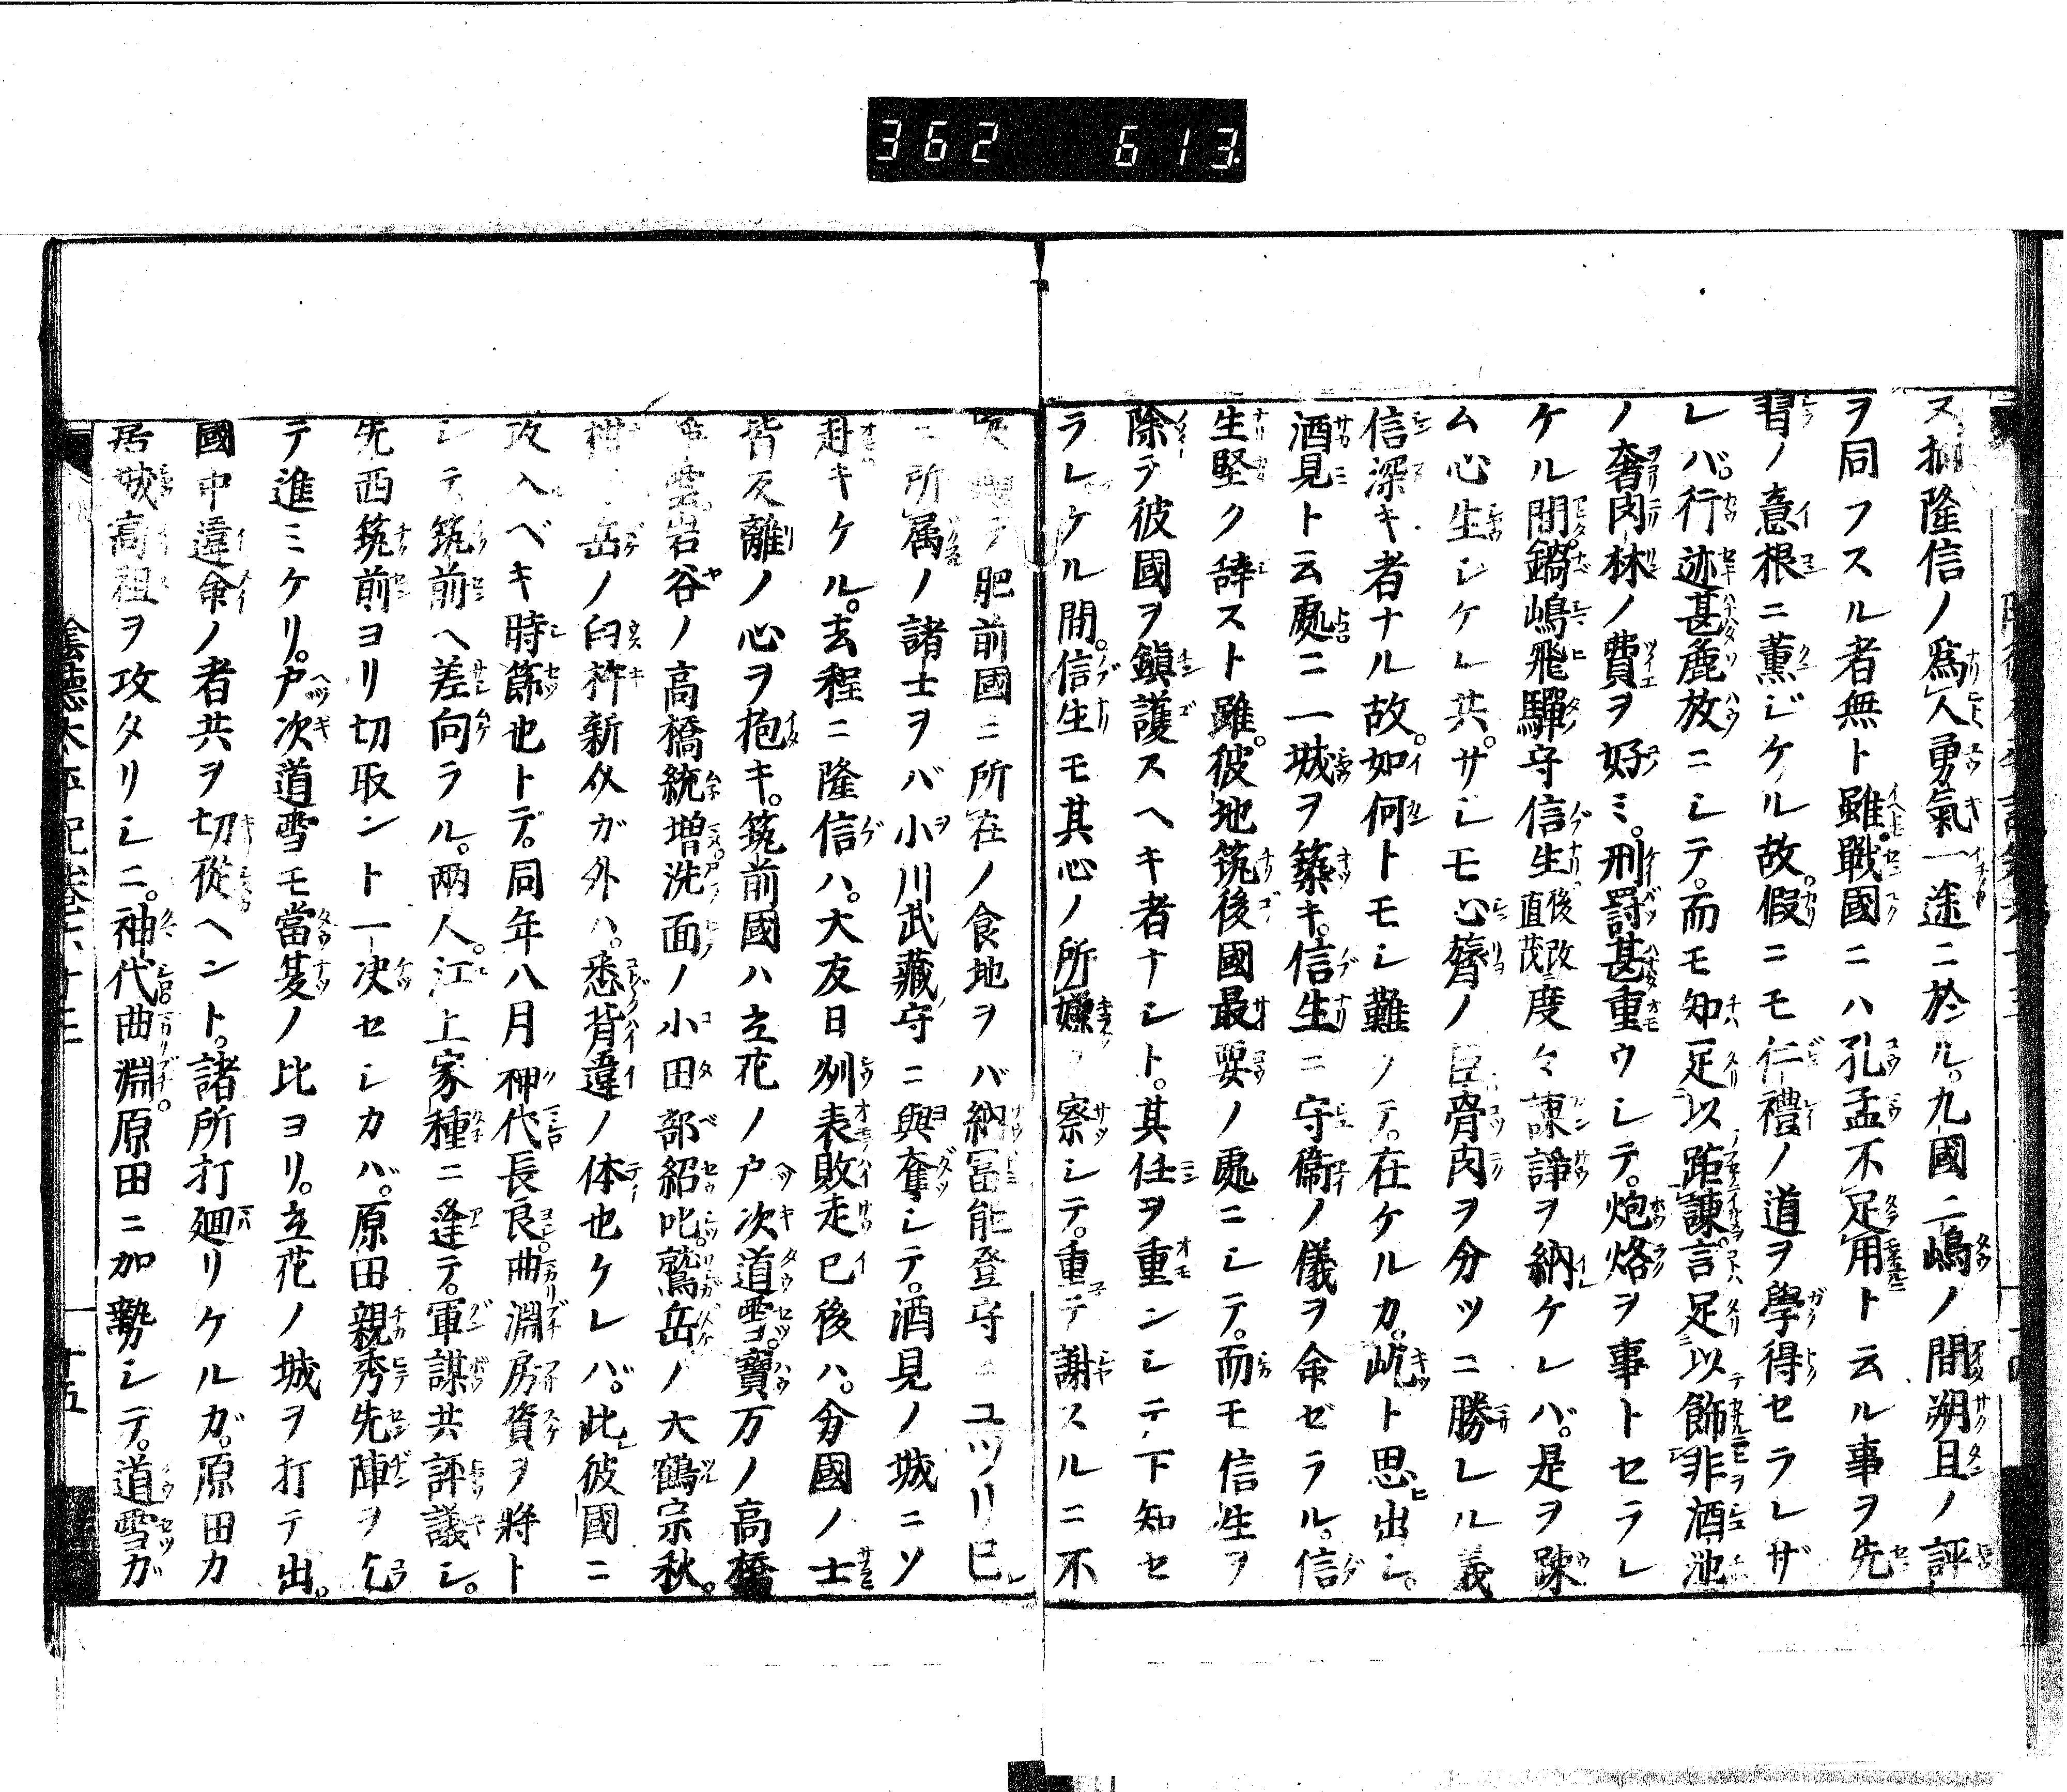 362 613
ヌ抑隆信ノ爲人勇氣一途ニ於ル。九國二嶋ノ間朔旦ノ評
ヲ同フスル者無ト雖。戰國ニハ孔孟不足用ト云ル事ヲ先
習ノ意根ニ薫ジケル故。假ニモ仁禮ノ道ヲ學得セラレザ
レバ。行迹甚麁放ニシテ。而モ知足以距諫。言足以飾非酒池
ノ奢肉林ノ費ヲ好ミ。刑罸甚重ウシテ。炮烙ヲ事トセラレ
ケル間。鍋嶋飛驒守信生後改直茂度々諫諍ヲ納ケレバ。是ヲ疎
ム心生シケレ共。サシモ心膂ノ臣骨肉ヲ分ツニ勝レル義
信深キ者ナル故。如何トモシ難ノテ。在ケルカ。屹ト思出シ。
酒見ト云處ニ一城ヲ築キ。信生ニ守衞ノ儀ヲ命ゼラル。信
生堅ク辞スト雖。彼地筑後國最要ノ處ニシテ。而モ信生ヲ
除テ彼國ヲ鎭護スヘキ者ナシト。其任ヲ重ンシテ下知セ
ラレケル間。信生モ其心ノ所嫌ヲ察シテ。重テ謝スルニ不
及 肥前國ニ所在ノ食地ヲバ納冨能登守ニユツリ已
ニ所属ノ諸士ヲバ小川武藏守ニ與奪シテ。酒見ノ城ニソ
赴キケル。去程ニ隆信ハ。大友日州表敗走已後ハ。分國ノ士
皆反離ノ心ヲ抱キ。筑前國ハ立花ノ戸次道雪。寶万ノ高橋
雲。岩谷ノ高橋統増洗面ノ小田部紹叱。鷲岳ノ大鶴宗秋。
岳ノ臼杵新介ガ外ハ。悉背違ノ体也ケレバ。此彼國ニ
攻入ベキ時節也トテ。同年八月神代長良。曲淵房資ヲ將ト
シテ筑前ヘ差向ラル。兩人。江上家種ニ逢テ。軍謀共評議シ。
先西筑前ヨリ切取ント一决セシカバ。原田親秀先陣ヲ乞
テ進ミケリ。戸次道雪モ當夏ノ比ヨリ。立花ノ城ヲ打テ出。
國中違命ノ者共ヲ切從ヘント。諸所打廻リケルガ。原田カ
居城高祖ヲ攻タリシニ。神代曲淵。原田ニ加勢シテ。道雪ガ
陰德太平記卷六十三 十五